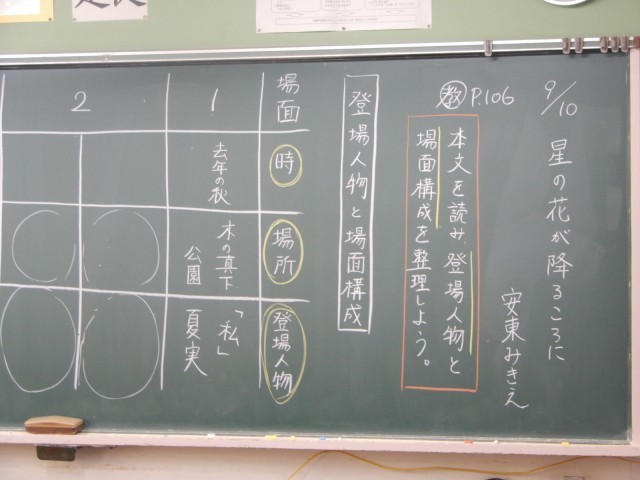 9/10
星の花が降るころに
安東みきえ
教 P.106
本文を読み、登場人物と
場面構成を整理しよう。
登場人物と場面構成
場面
時
場所
登場人物
1
去年の秋
木の真下
公園
「私」
夏実
2